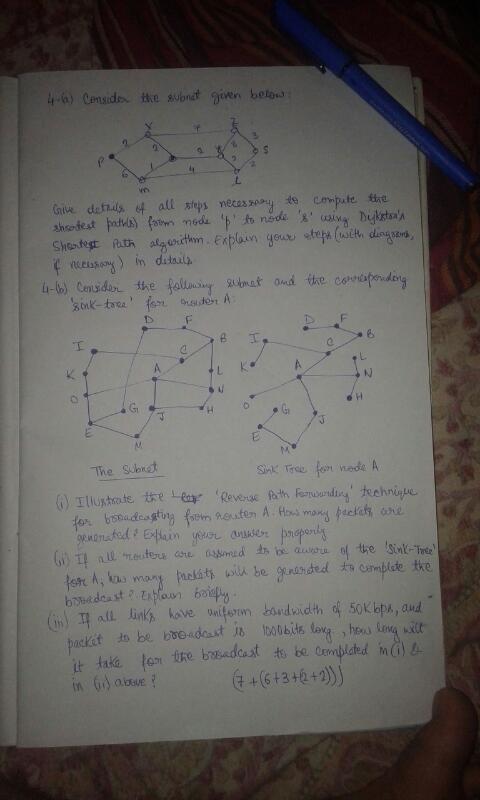 4-(a) Consider the subnet given below:
Y 7 Z
2 2 8 3
P 2 S
6 1 4 3 2
m L
Give details of all steps necessary to compute the
shortest path(s) from node 'p' to node 's' using Dijkstra's
Shortest Path algorithm. Explain your steps (with diagrams,
if necessary) in details.
4-(b) Consider the following subnet and the corresponding
'sink-tree' for router A:
D F
I B
C
K A L
O N
G J H
E
M
D F
I C B
K A L
N
O G H
E J
M
The Subnet
Sink Tree for node A
(i) Illustrate the 'Reverse Path Forwarding' technique
for broadcasting from router A. How many packets are
generated? Explain your answer properly
(ii) If all routers are assumed to be aware of the 'Sink-Tree'
for A, how many packets will be generated to complete the
broadcast? Explain briefly.
(iii) If all links have uniform bandwidth of 50Kbps, and
packet to be broadcast is 1000bits long, how long will
it take for the broadcast to be completed in (i) &
in (ii) above?
(7+(6+3+(2+2)))